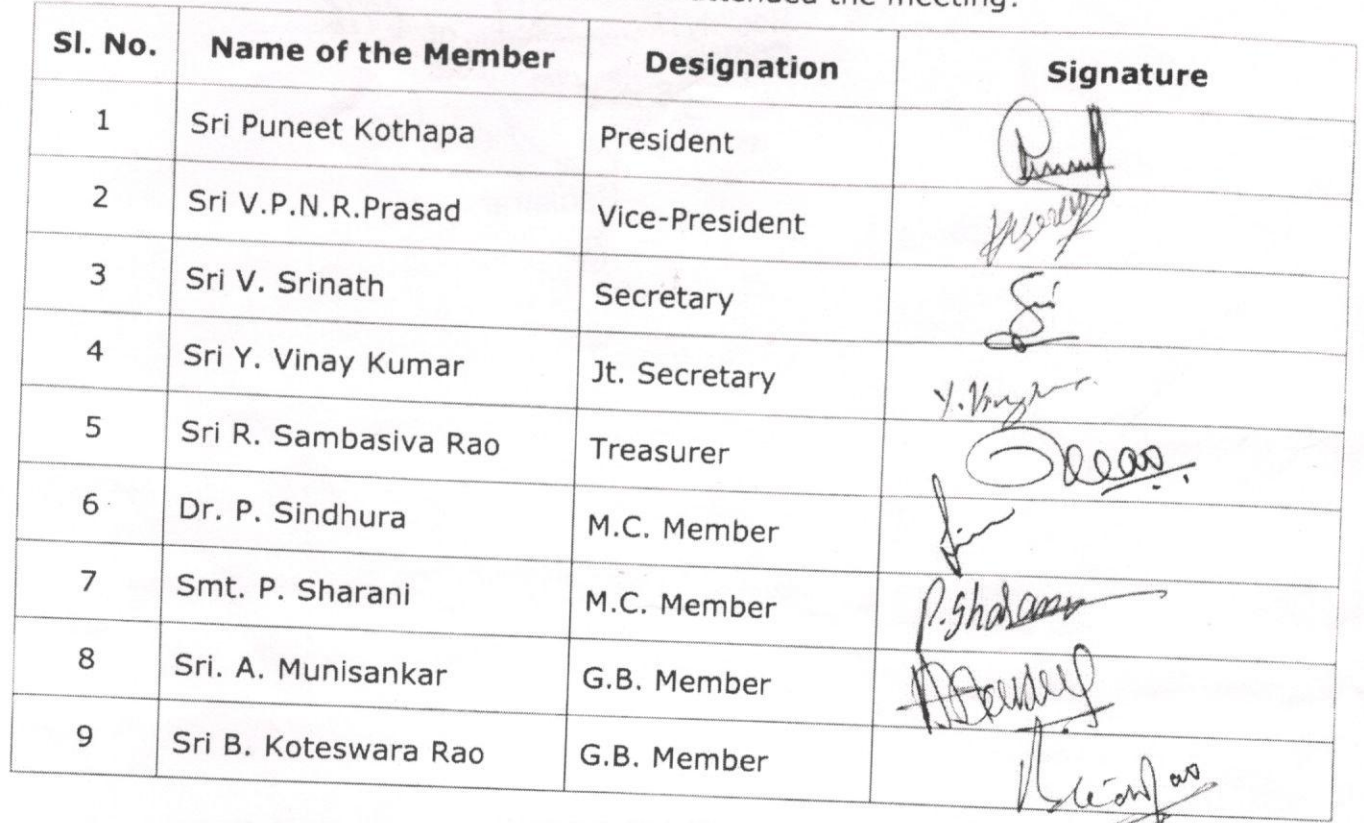 attended the meeting.
Sl. No. Name of the Member Designation Signature
1 Sri Puneet Kothapa President
2 Sri V.P.N.R.Prasad Vice-President
3 Sri V. Srinath Secretary
4 Sri Y. Vinay Kumar Jt. Secretary
5 Sri R. Sambasiva Rao Treasurer
6 Dr. P. Sindhura M.C. Member
7 Smt. P. Sharani M.C. Member P. Sharani
8 Sri. A. Munisankar G.B. Member
9 Sri B. Koteswara Rao G.B. Member